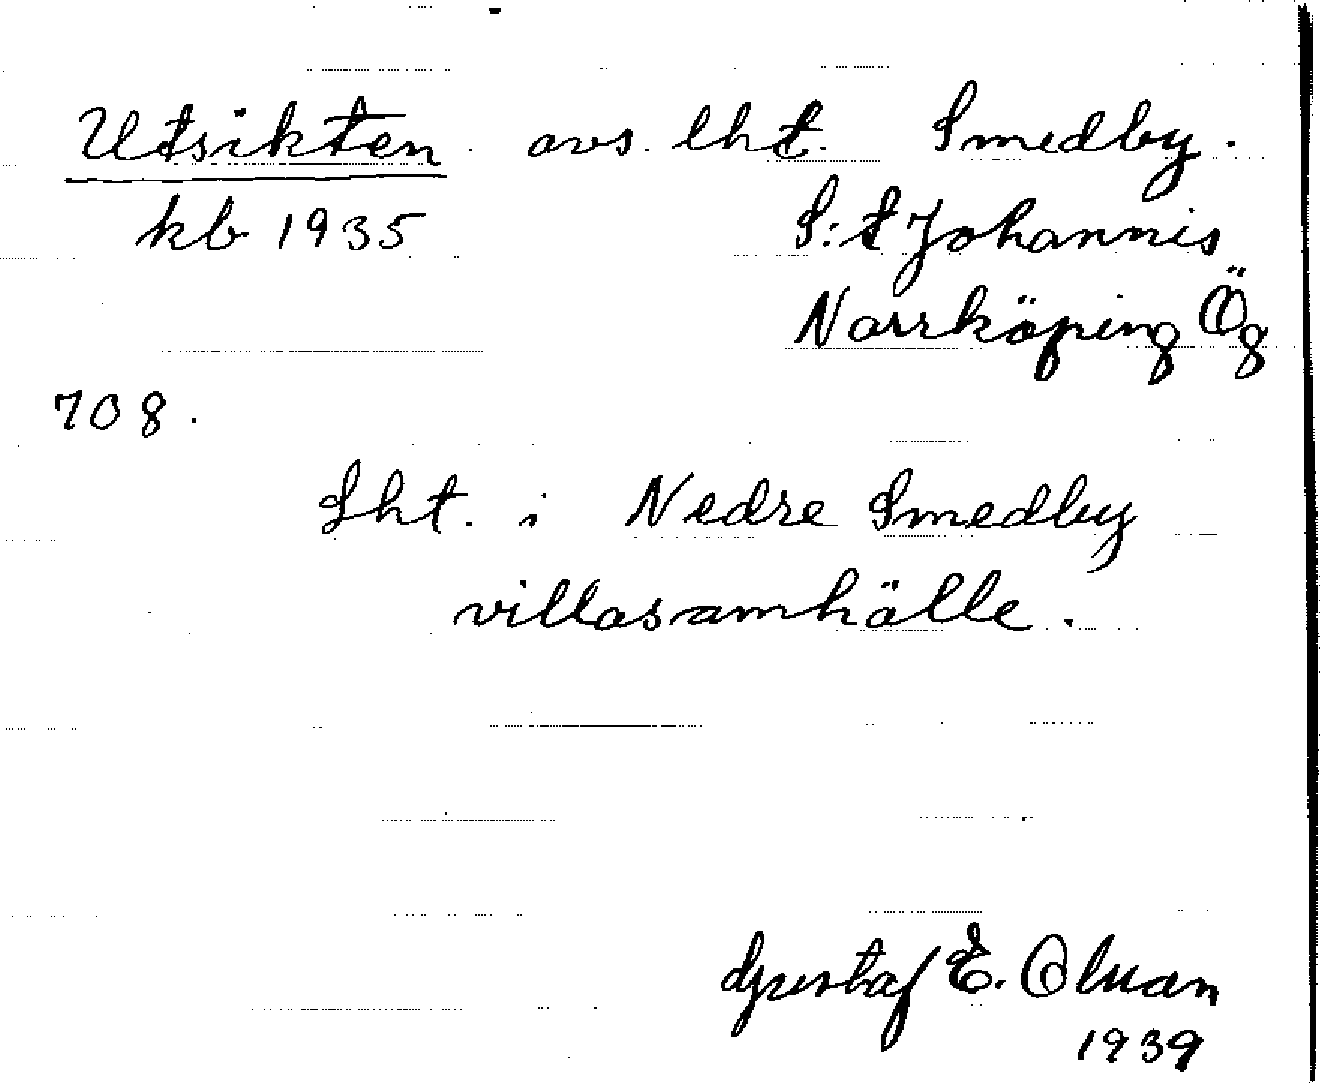 Utsikten avs. lht. Smedby.
kb 1935 S:t Johannis
Norrköping Ög
708.
Lht. i Nedre Smedby
villasamhälle.
Gustaf E. Olsson
1939